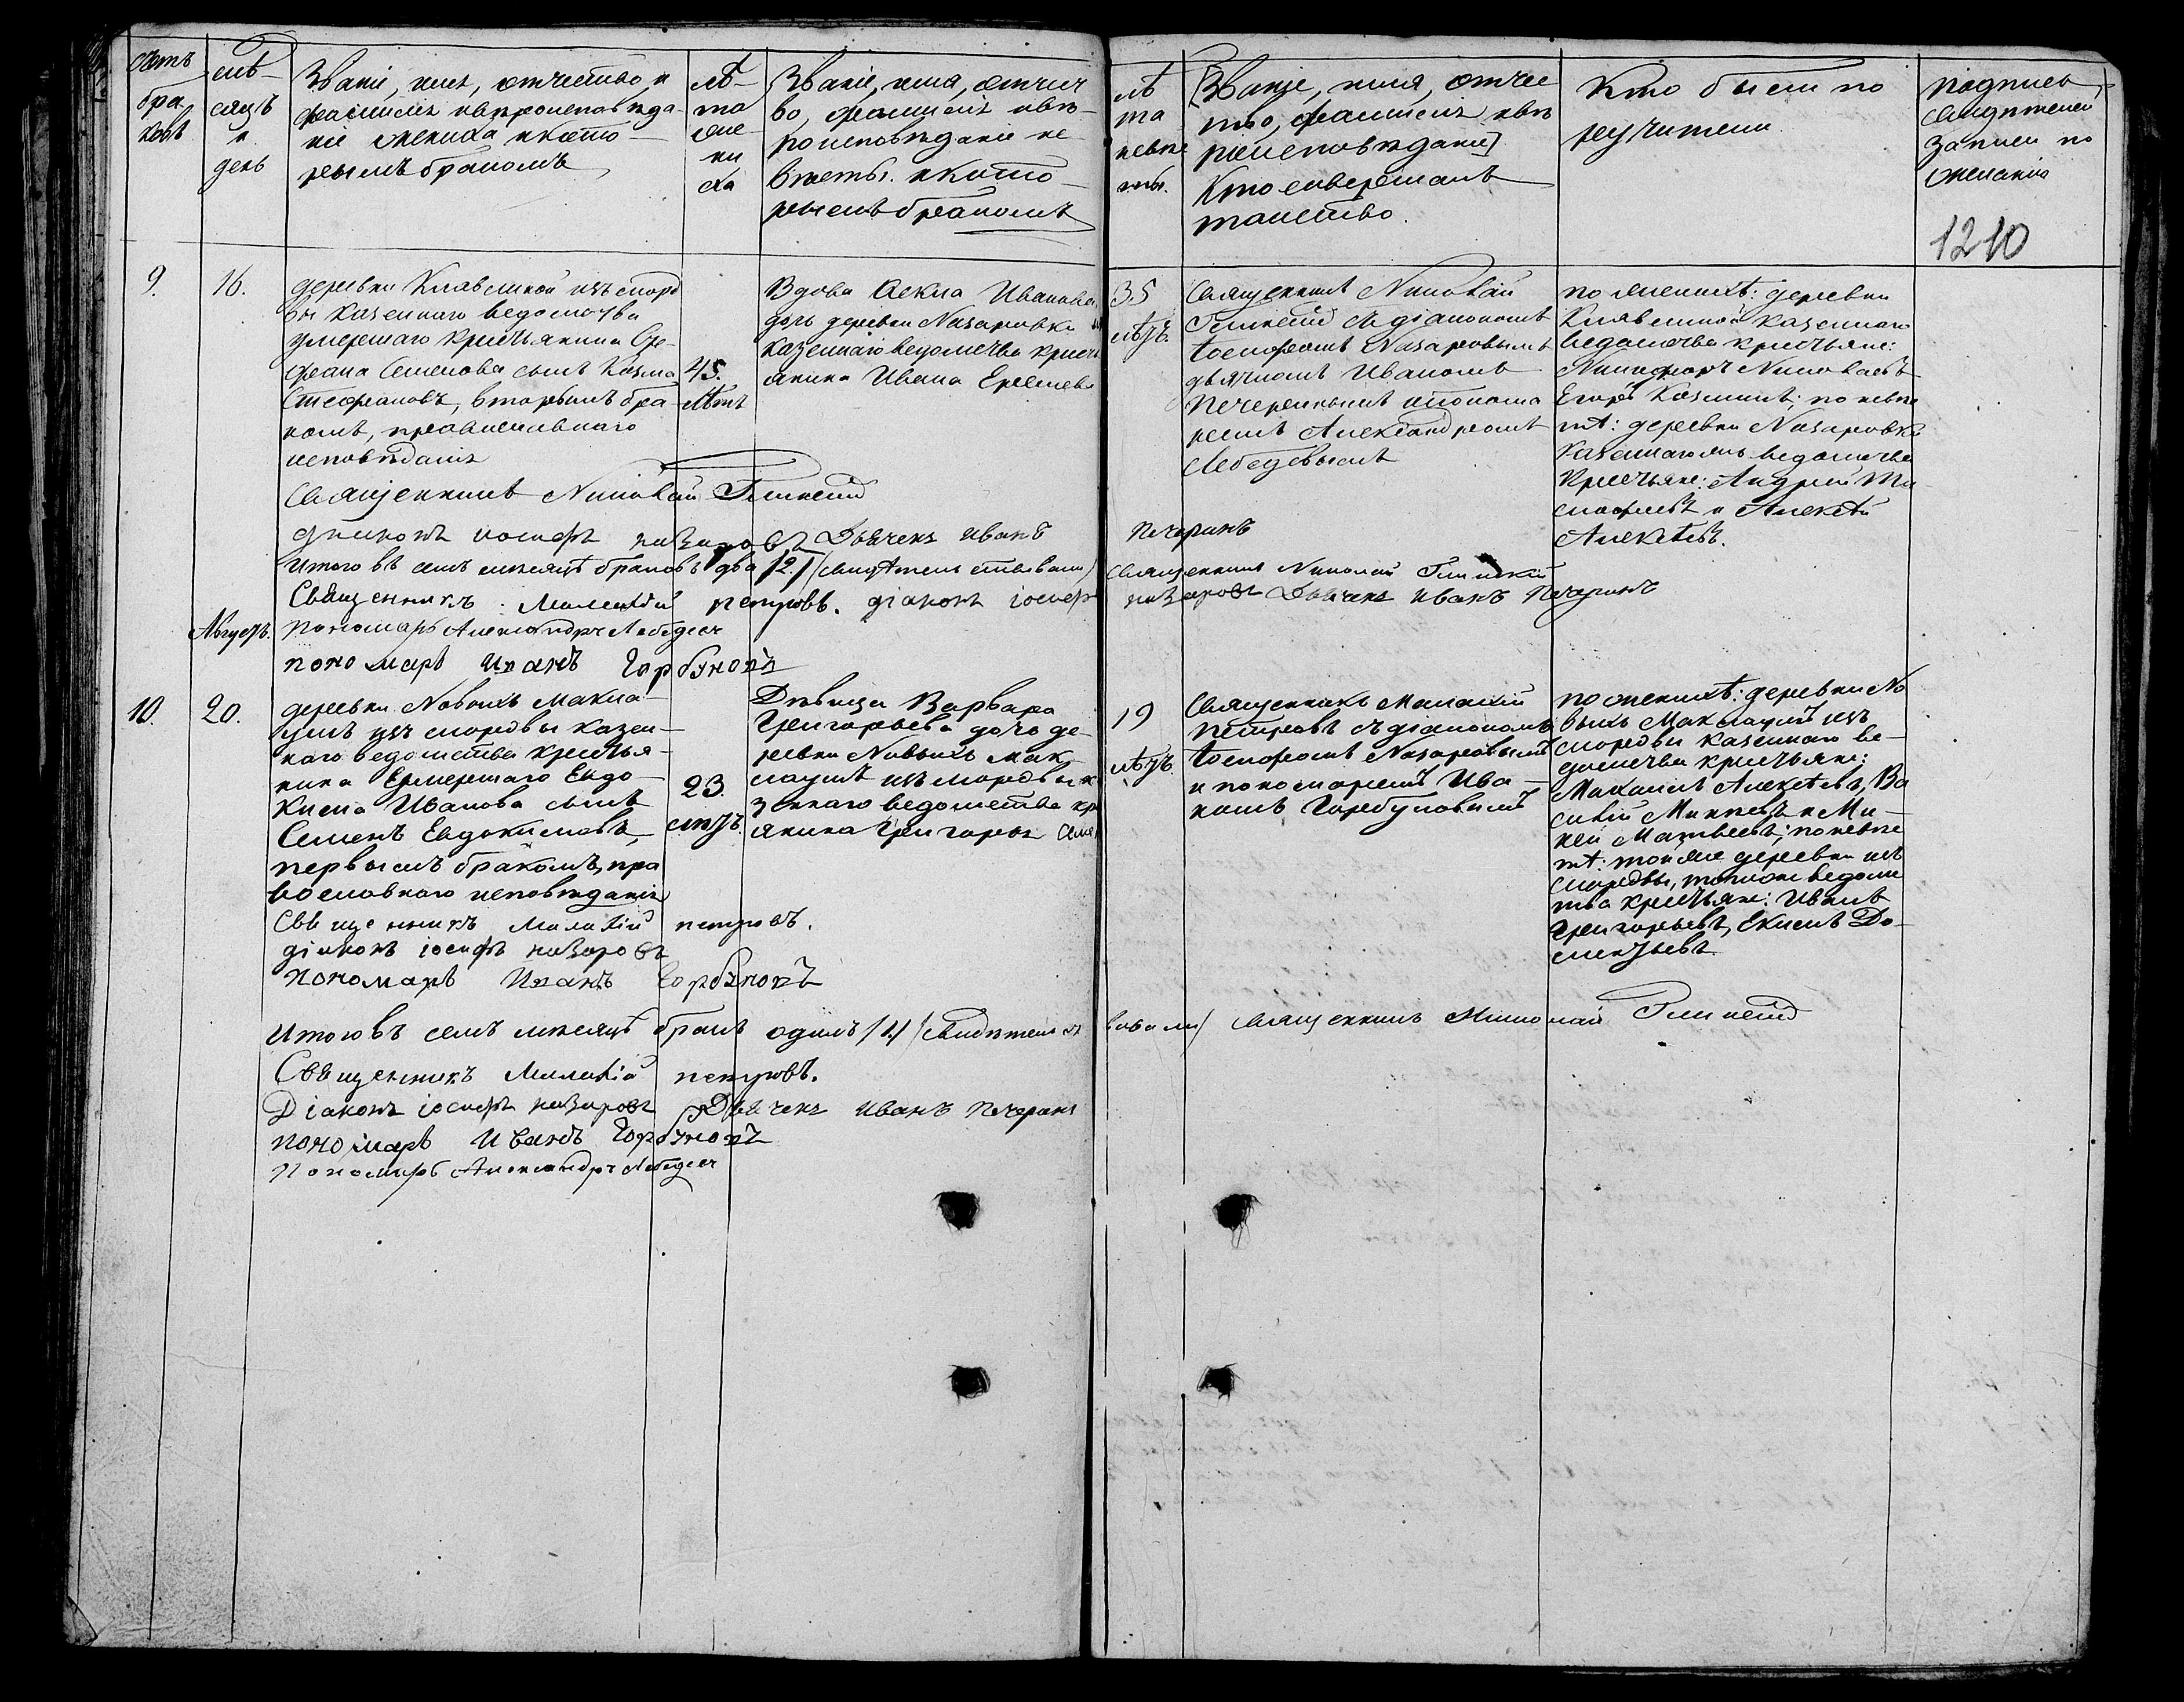 счетъ
бра
ковъ
мѣ-
сяцъ
и
день
Званіе, имя, отчество, и
фамилія и вѣроисповѣда-
ніе жениха и кото-
рымъ бракомъ
лѣ-
та
же
ни
ха
Званіе, имя, отчест
во, фамилія и вѣ-
роисповѣданіе не
вѣсты. и кото-
рымъ бракомъ
лѣ
та
невѣс
ты.
[Званіе, имя, отчес
тво, фамилія и вѣ
роисповѣданіе]
Кто совершалъ
таинство.
Кто были по
ручители
подпись
свидѣтелей
записи по
желанію
1210
9.
16.
деревни Клявлиной изъ морд
вы казеннаго ведомства
умершаго крестьянина Сте-
фана Семенова сынъ Козма
Стефановъ, вторымъ бра-
комъ, православнаго
исповѣданія
45.
лѣтъ
Вдова Фекла Иванова
дочь деревни Назаровки
казеннаго ведомства крест
янина Ивана
35
лѣтъ.
Священникъ Николай
Глинскій съ діакономъ
Іосифомъ Назаровымъ
дьячкомъ Иваномъ
Печеринымъ и понома
ремъ Александромъ
Лебедевымъ
по женихѣ: деревни
Клявлиной казеннаго
ведомства крестьяне:
Никифоръ Николаевъ
Егоръ Козминъ; по невѣс
тѣ: деревни Назаровки
казеннагожъ ведомства
крестьяне: Андрей Ти
мофѣевъ и Алексѣй
Алексѣевъ.
Священникъ Николай Глинскій
діаконъ іосифъ назаровъ Дьячекъ Иванъ Печеринъ
Итого въ семъ месяцѣ браковъ два /2./ (свидѣтельствовали) Священникъ Николай Глинскій
Священникъ Малахій петровъ. діаконъ іосифъ назаровъ Дьячекъ Иванъ Печеринъ
Августъ.
пономарь Александръ Лебедевъ
пономарь Иванъ Горбуновъ
10.
20.
деревни Новыхъ Макла-
ушъ изъ мордвы казен-
наго ведомства крестья-
нина умершаго Евдо-
кима Иванова сынъ
Семенъ Евдокимовъ,
первымъ бракомъ, пра
вославнаго исповѣданія
23.
лѣтъ.
Дѣвица Варвара
Григорьева дочь де-
ревни Новыхъ Мак-
лаушъ изъ мордвы ка
зеннаго ведомства кр
янина Григорья
19
лѣтъ.
Священникъ Малахій
Петровъ съ діакономъ
Іосифомъ Назаровымъ
и пономаремъ Ива-
номъ Горбуновымъ
по женихѣ: деревни Но
выхъ Маклаушъ изъ
мордвы казеннаго ве-
домства крестьяне:
Алексѣевъ, Ва
силій и Ми-
хей Матвеевъ; по невѣс
тѣ: тойже деревни изъ
мордвы, тогоже ведомс
тва крестьяне: Иванъ
Григорьевъ, Екимъ До-
ментьевъ.
Священникъ Малахій петровъ.
діаконъ іосифъ назаровъ
пономарь Иванъ Горбуновъ
Итого въ семъ месяцѣ бракъ одинъ /1./ (свидѣтельствовали) Священникъ Николай Глинскій
Священникъ Малахій петровъ.
Діаконъ іосифъ назаровъ Дьячекъ Иванъ Печеринъ
пономарь Иванъ Горбуновъ
Пономарь Александръ Лебедевъ